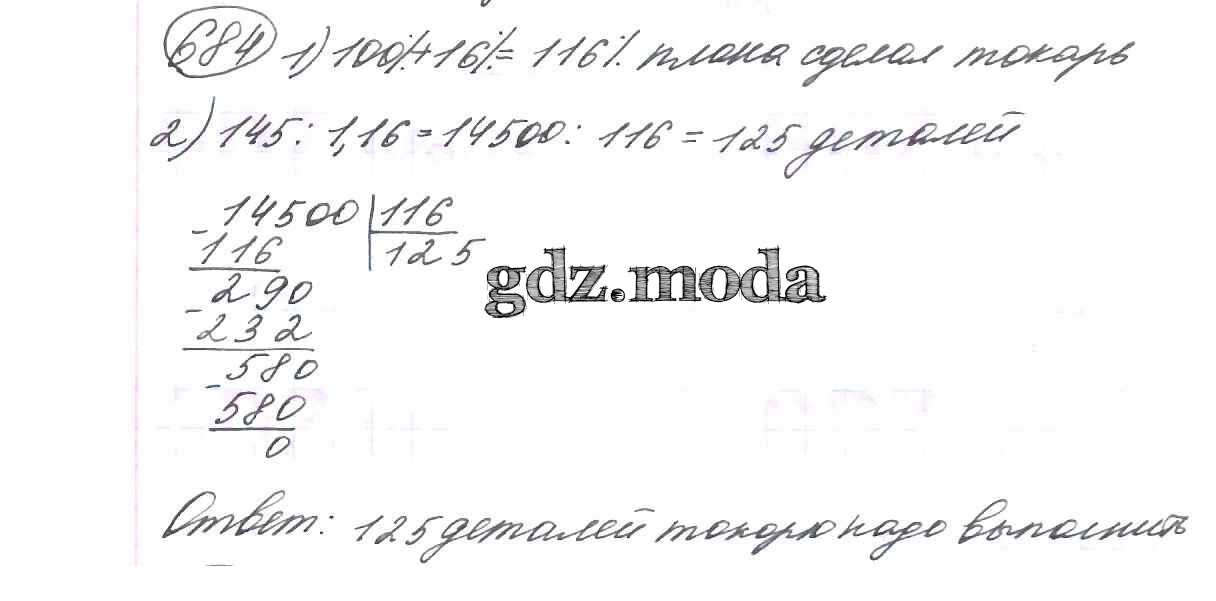 684 1) 100% + 16% = 116% плана сделал токарь
2) 145 : 1,16 = 14500 : 116 = 125 деталей
- 14500 | 116
116 125
- 290
232
- 580
580
0
gdz.moda
Ответ: 125 деталей токарю надо выполнить